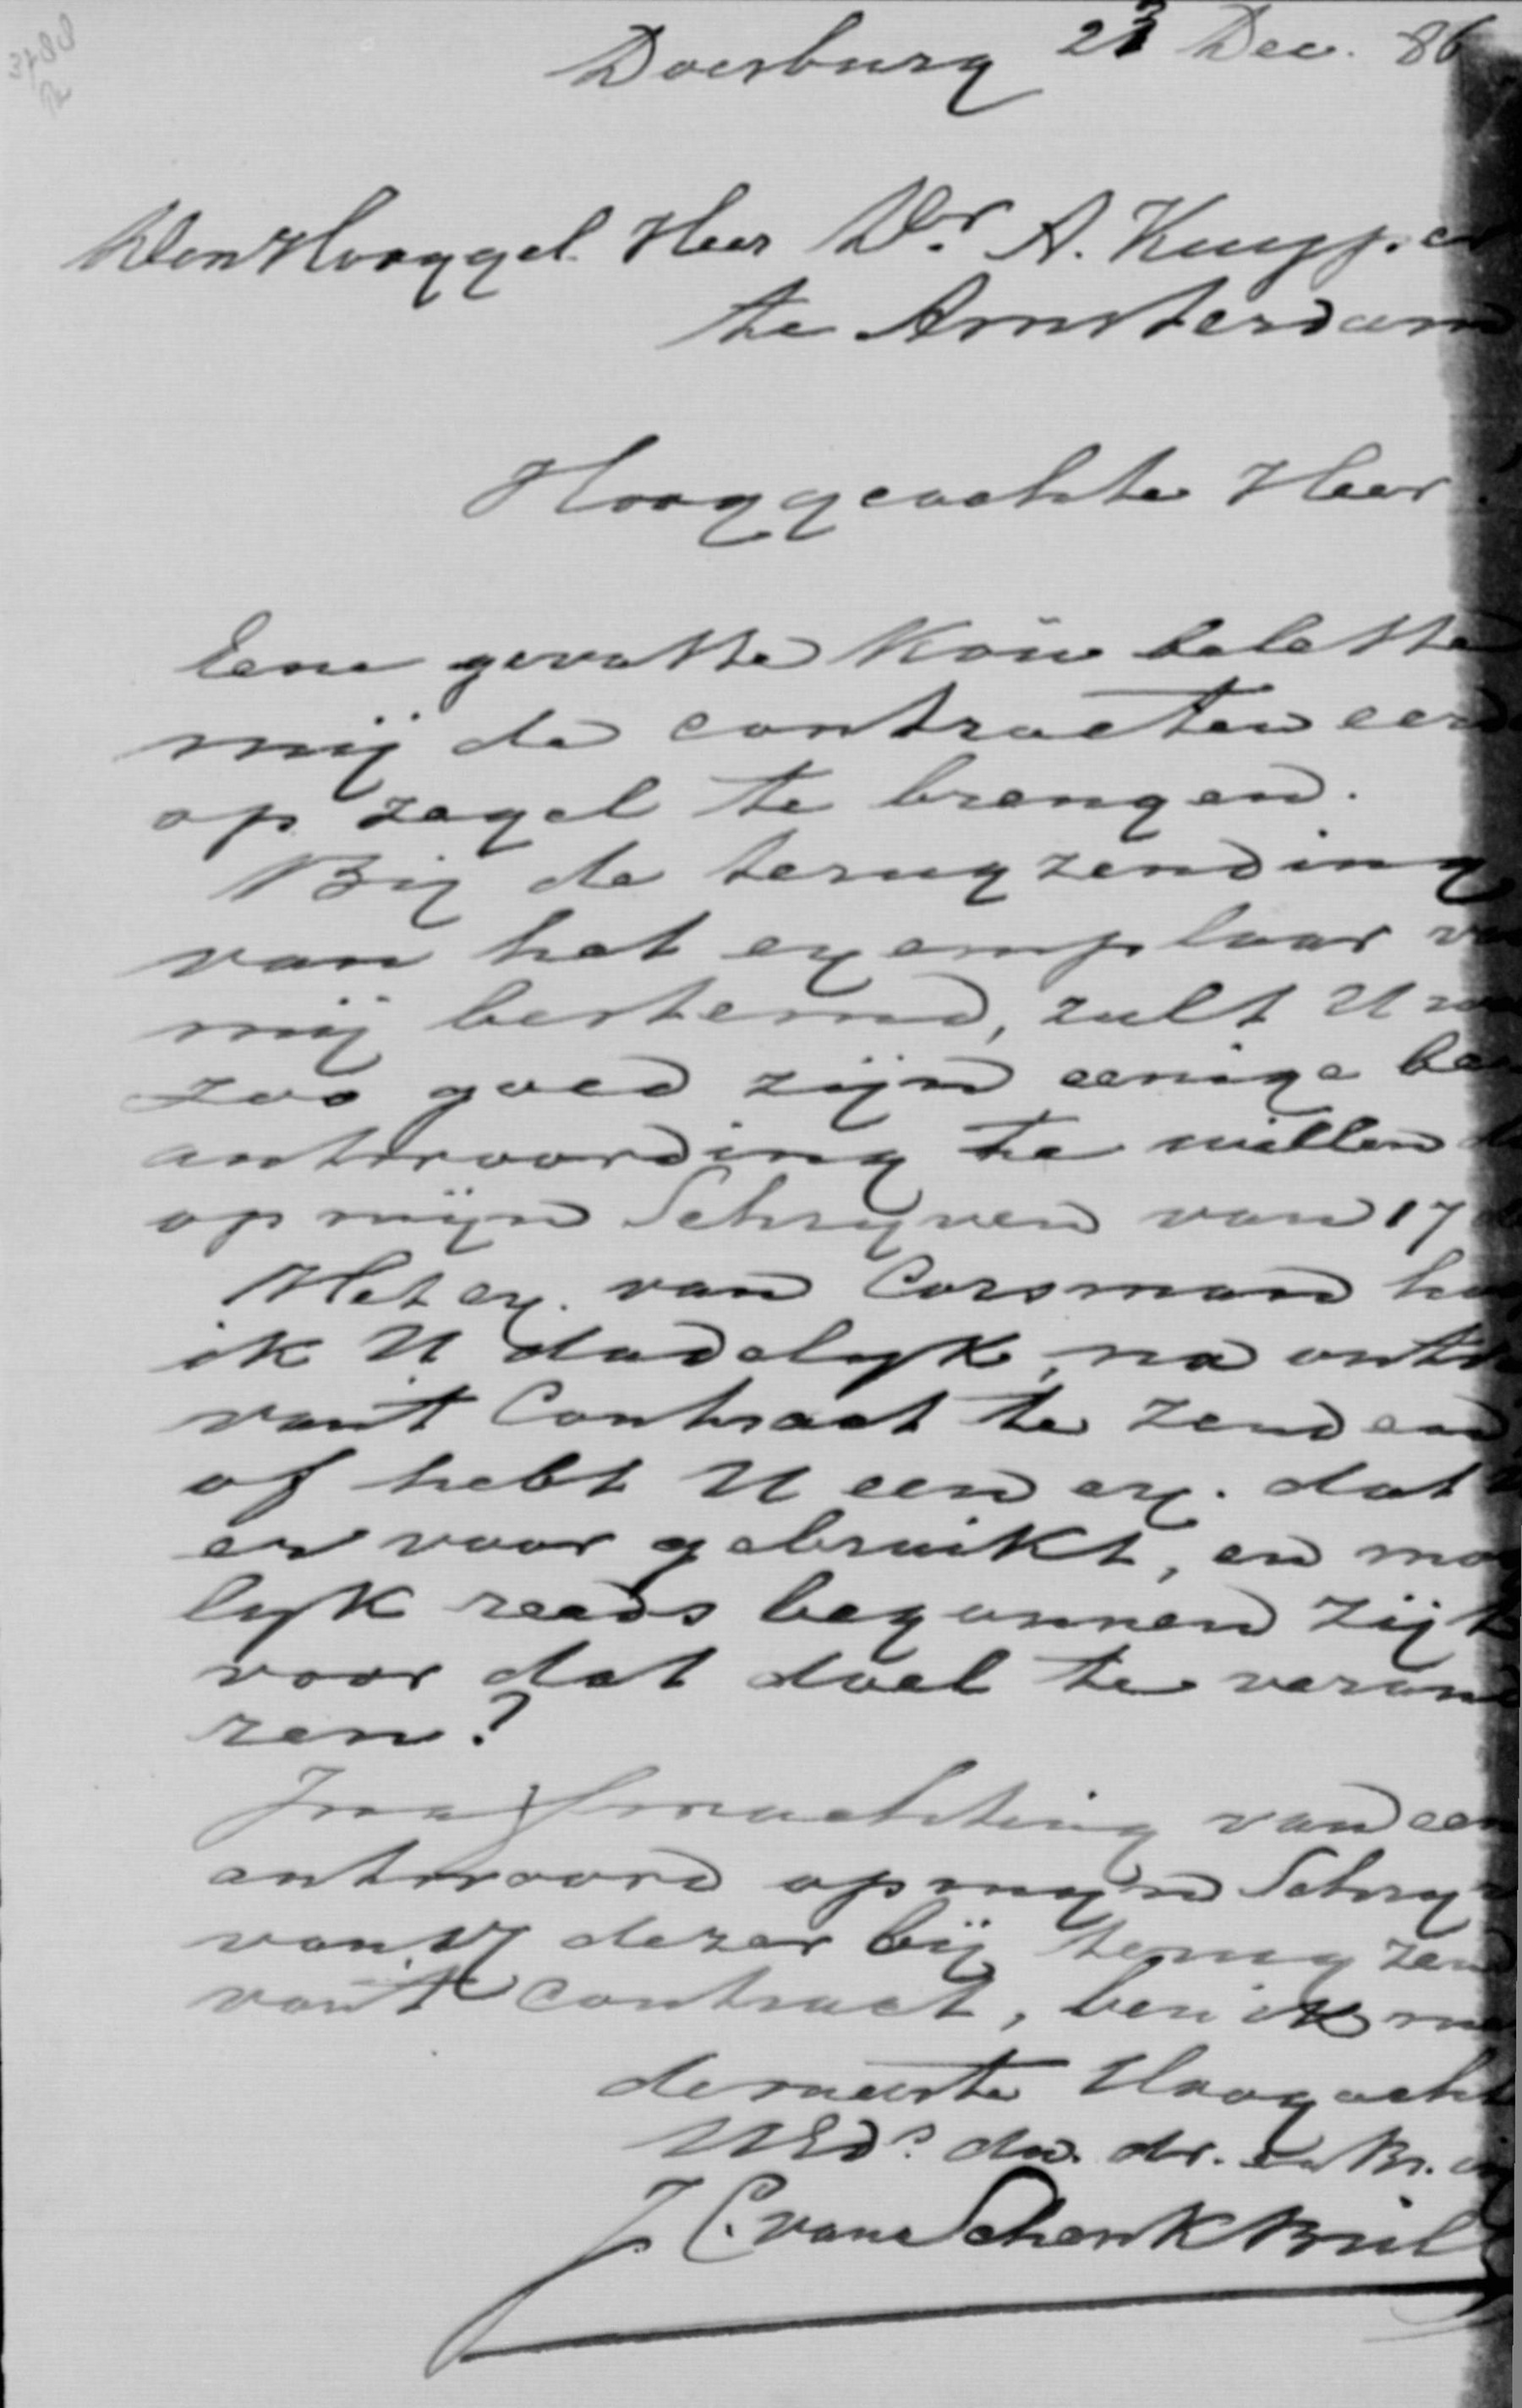 3788
Doesburg 23 Dec. 86
Den Hooggel. Heer Dr. A. Kuyper
te Amsterdam
Hooggeachte Heer!
Eene gevatte Kou belette
mij de contracten eer
op zegel te brengen.
Bij de terugzending
van het exemplaar v
mij bestemd, zult U
zoo goed zijn eenige be
antwoording te willen
op mijn Schryven van 17
Het ex. van Corsman
ik U dadelyk, na
van't Contract te zenden
of hebt U een ex. dat
er voor gebruikt, en mo
lyk reeds begonnen zijt
voor dat doel te veran
ren?
In afwachting van een
antwoord op myn Schry
van 17 dezer bij terug zen
van't contract, ben ik me
de meeste Hoogacht
UEd's dw. dr. en Br.
J C. van Schenk Brill